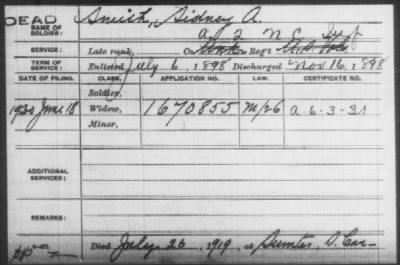 DEAD
NAME OF SOLDIER: Smith, Sidney A.
A, 2 N.C. Inf
SERVICE: Late rank, Co. Reg't
TERM OF SERVICE: Enlisted July 6, 1898 Discharged Nov 16, 1898
DATE OF FILING. CLASS. APPLICATION NO. LAW. CERTIFICATE NO.
Soldier,
1930 June 18 Widow, 1670855 A-6-3-31
Minor,
ADDITIONAL SERVICES:
REMARKS:
Died July 26, 1919, at Sumter, S. Car-